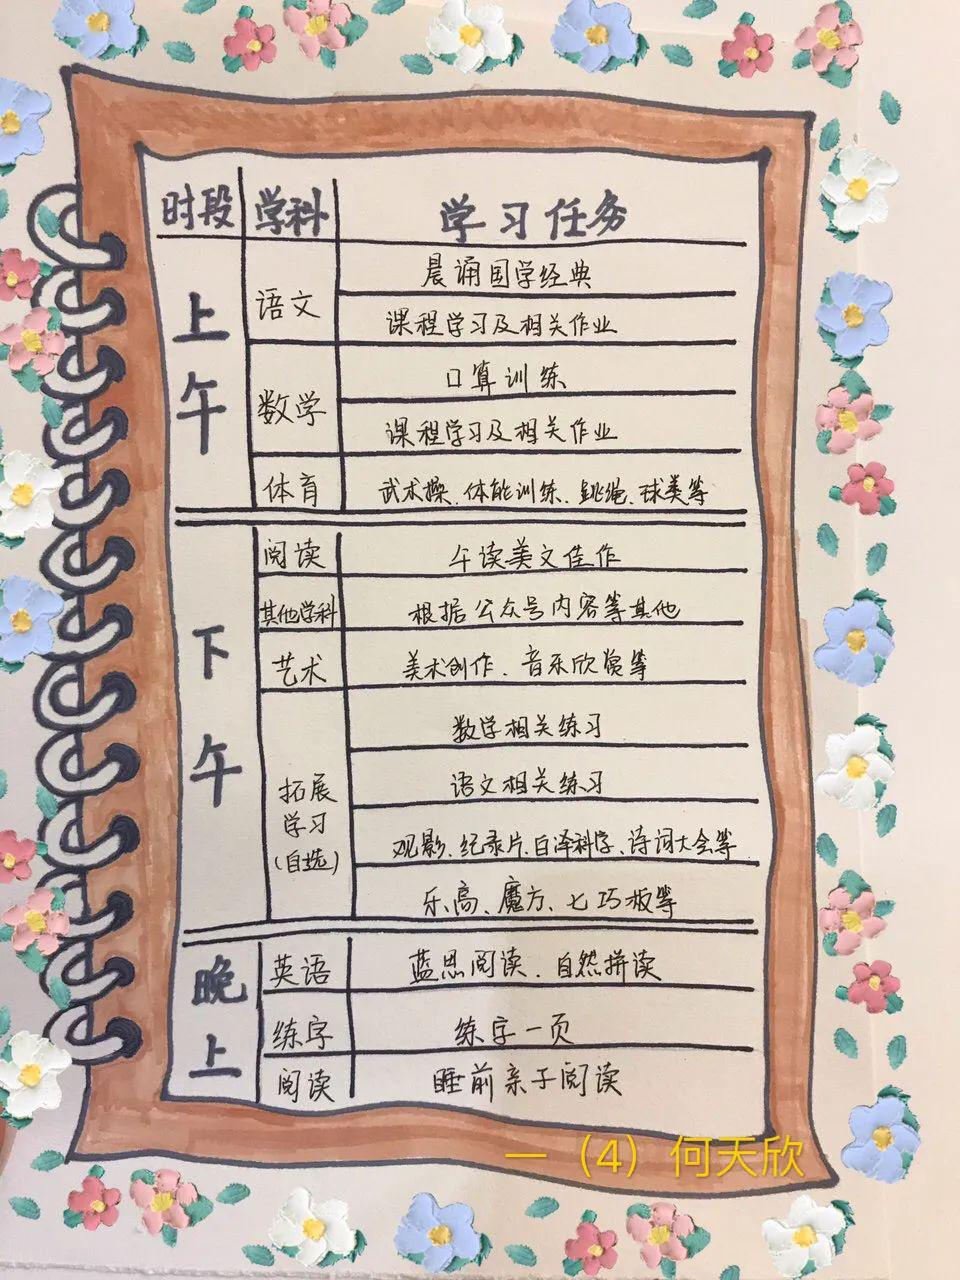 时段 学科 学习任务
上午 语文 晨诵国学经典
课程学习及相关作业
数学 口算训练
课程学习及相关作业
体育 武术操、体能训练、跳绳、球类等
下午 阅读 午读美文佳作
其他学科 根据公众号内容等其他
艺术 美术创作、音乐欣赏等
拓展学习(自选) 数学相关练习
语文相关练习
观影、纪录片、白泽科学、诗词大会等
乐高、魔方、七巧板等
晚上 英语 蓝思阅读、自然拼读
练字 练字一页
阅读 睡前亲子阅读
一（4）何天欣